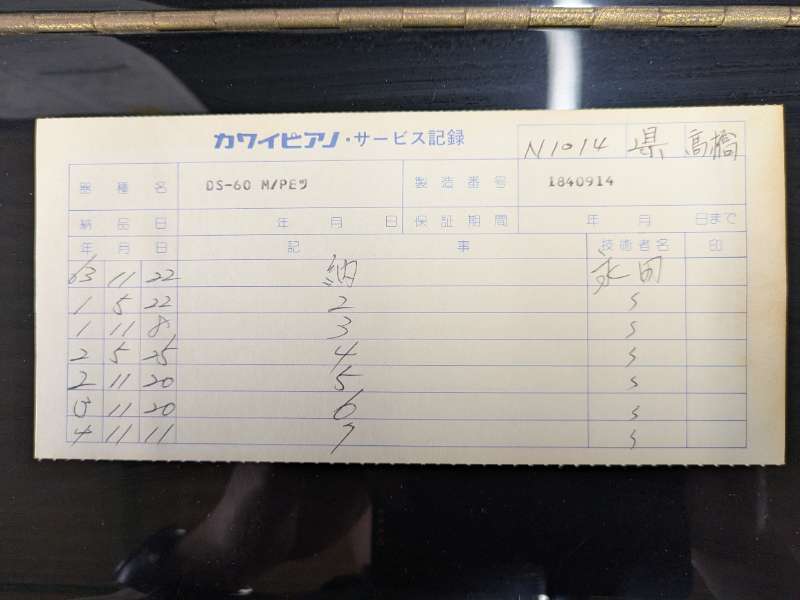 カワイピアノ・サービス記録 N1014 県 高橋
器種名 DS-60 M/PEツ 製造番号 1840914
納品日 年 月 日 保証期間 年 月 日まで
年 月 日 記 事 技術者名 印
63 11 22 納 永田
1 5 22 2 〃
1 11 8 3 〃
2 5 25 4 〃
2 11 20 5 〃
3 11 20 6 〃
4 11 11 7 〃